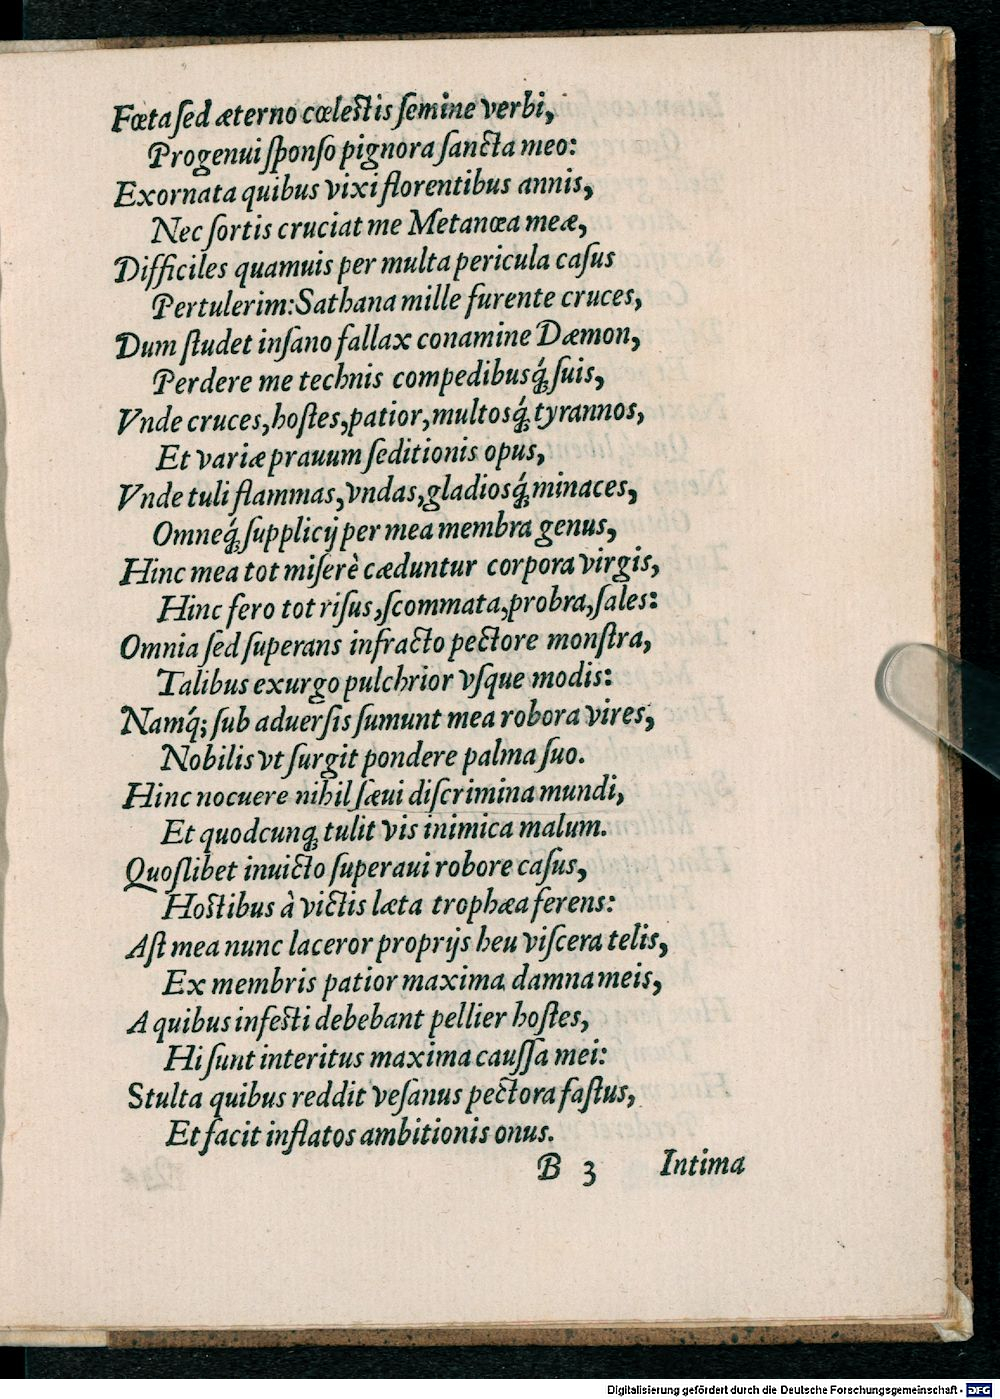 Fœta ſed æterno cœleſtis ſemine verbi,
Progenui ſponſo pignora ſancta meo:
Exornata quibus vixi florentibus annis,
Nec ſortis cruciat me Metanœa meæ,
Difficiles quamuis per multa pericula caſus
Pertulerim: Sathana mille furente cruces,
Dum ſtudet inſano fallax conamine Dæmon,
Perdere me technis compedibusq́ꝫ ſuis,
Vnde cruces, hoſtes, patior, multosq́ꝫ tyrannos,
Et variæ prauum ſeditionis opus,
Vnde tuli flammas, vndas, gladiosq́ꝫ minaces,
Omneq́ꝫ ſupplicij per mea membra genus,
Hinc mea tot miſerè cæduntur corpora virgis,
Hinc fero tot riſus, ſcommata, probra, ſales:
Omnia ſed ſuperans infracto pectore monſtra,
Talibus exurgo pulchrior vſque modis:
Namq́; ſub aduerſis ſumunt mea robora vires,
Nobilis vt ſurgit pondere palma ſuo.
Hinc nocuere nihil ſæui diſcrimina mundi,
Et quodcunqꝫ tulit vis inimica malum.
Quoſlibet inuicto ſuperaui robore caſus,
Hoſtibus à victis læta trophæa ferens:
Aſt mea nunc laceror proprijs heu viſcera telis,
Ex membris patior maxima damna meis,
A quibus infeſti debebant pellier hoſtes,
Hi ſunt interitus maxima cauſſa mei:
Stulta quibus reddit veſanus pectora faſtus,
Et facit inflatos ambitionis onus.
B 3 Intima
Digitalisierung gefördert durch die Deutsche Forschungsgemeinschaft - DFG